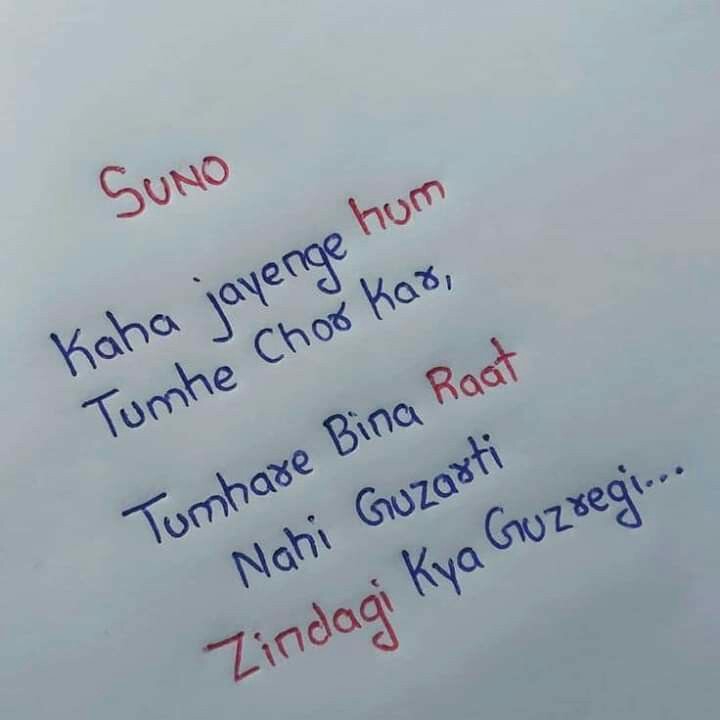 SUNO
Kaha jayenge hum
Tumhe Chor Kar,
Tumhare Bina Raat
Nahi Guzarti
Zindagi Kya Guzregi...